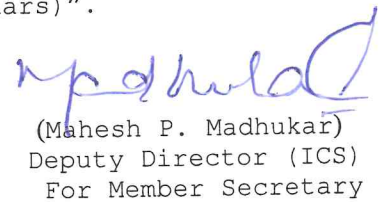 ars)".
Madhukar
(Mahesh P. Madhukar)
Deputy Director (ICS)
For Member Secretary